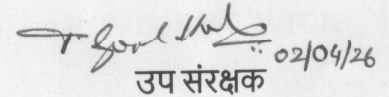 02/04/26
उप संरक्षक